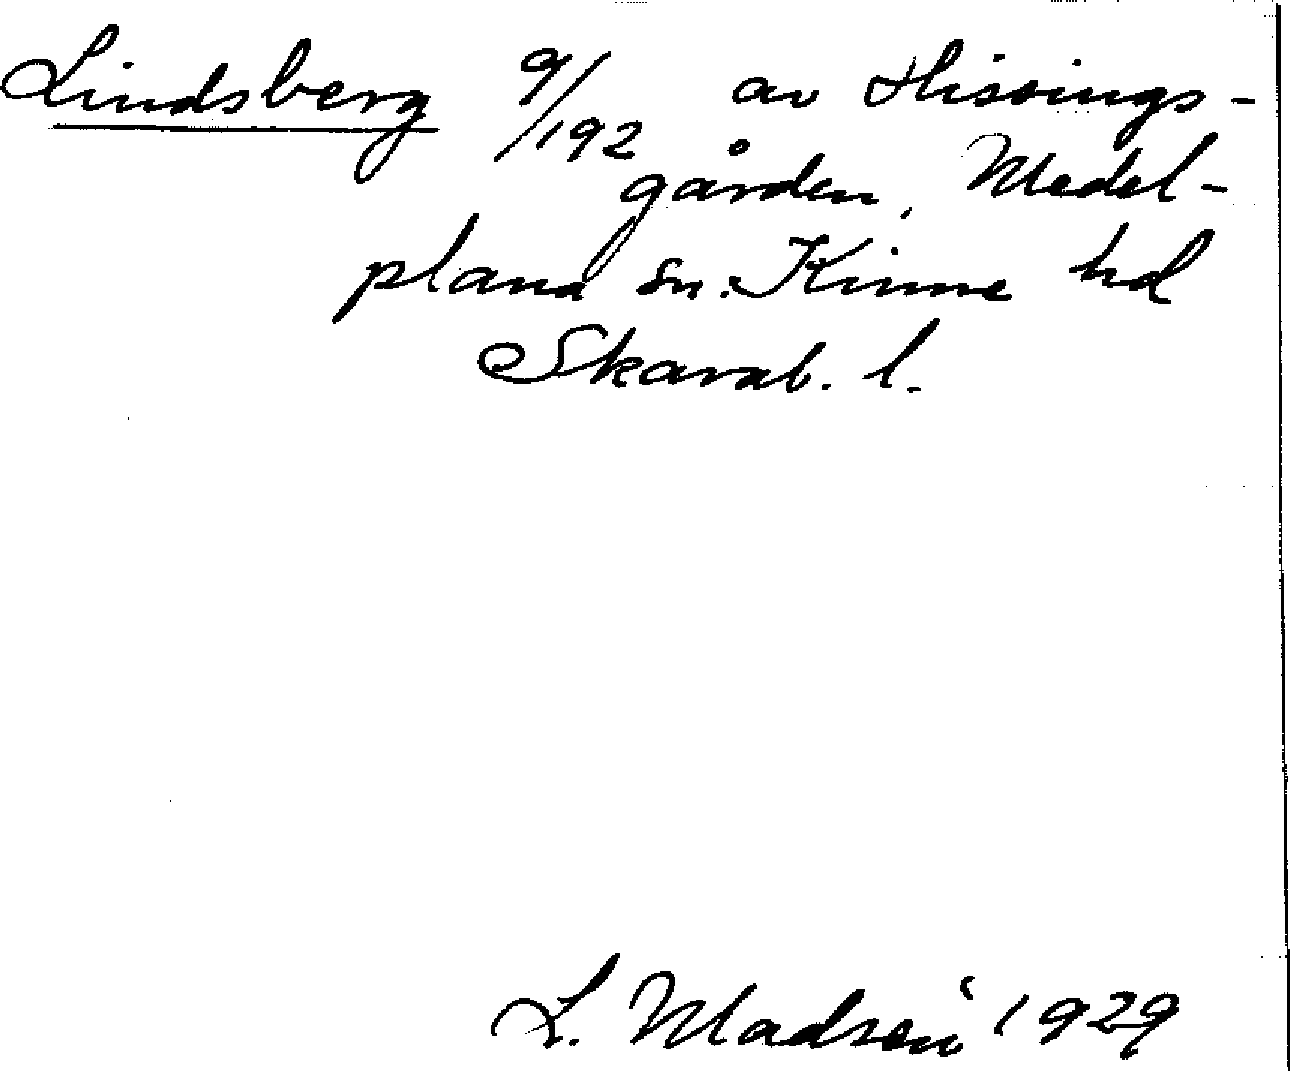 Lindsberg 9/192 av Hissings-
gården, Medel-
plana sn. Kinne hd
Skarab. l.
L. Madsen 1929